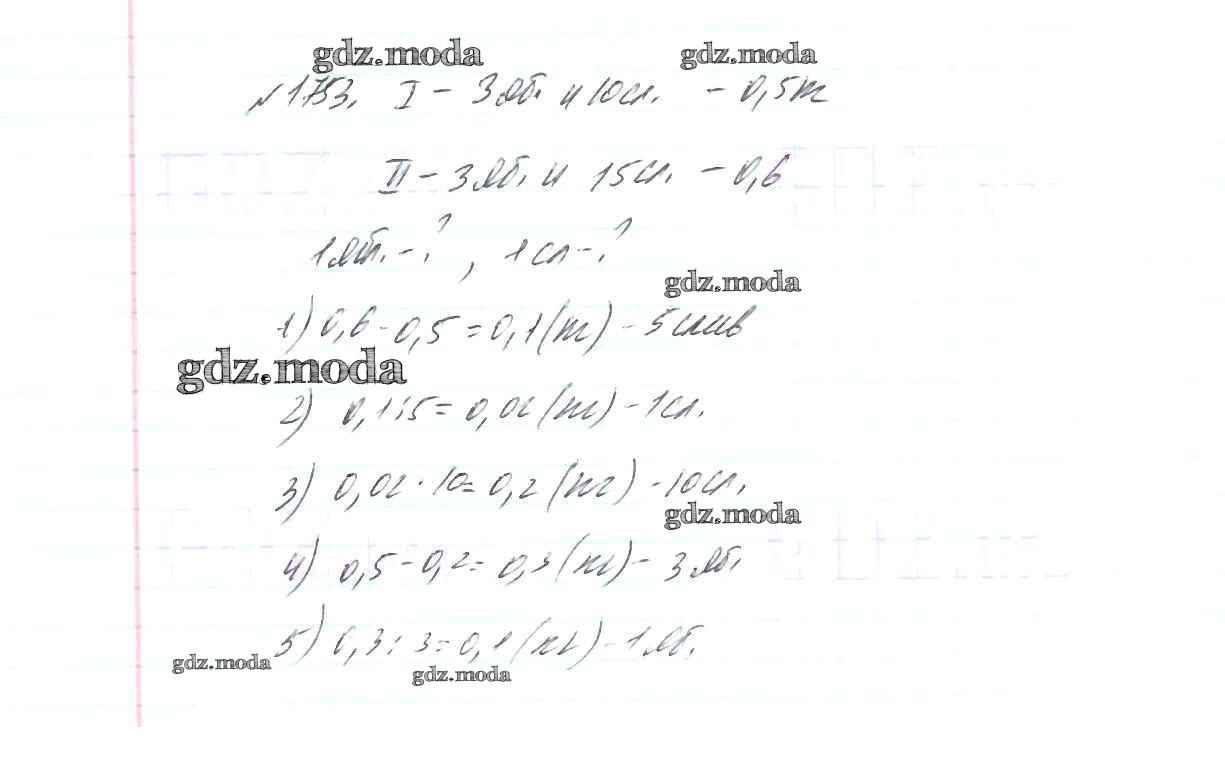 gdz.moda gdz.moda
№1753. I – 3 яб. и 10 сл. – 0,5 кг
II – 3 яб. и 15 сл. – 0,6
1 яб. – ?, 1 сл – ?
gdz.moda
1) 0,6 - 0,5 = 0,1 (кг) – 5 слив
gdz.moda
2) 0,1 : 5 = 0,02 (кг) – 1 сл.
3) 0,02 · 10 = 0,2 (кг) – 10 сл.
gdz.moda
4) 0,5 - 0,2 = 0,3 (кг) – 3 яб.
5) 0,3 : 3 = 0,1 (кг) – 1 яб.
gdz.moda gdz.moda